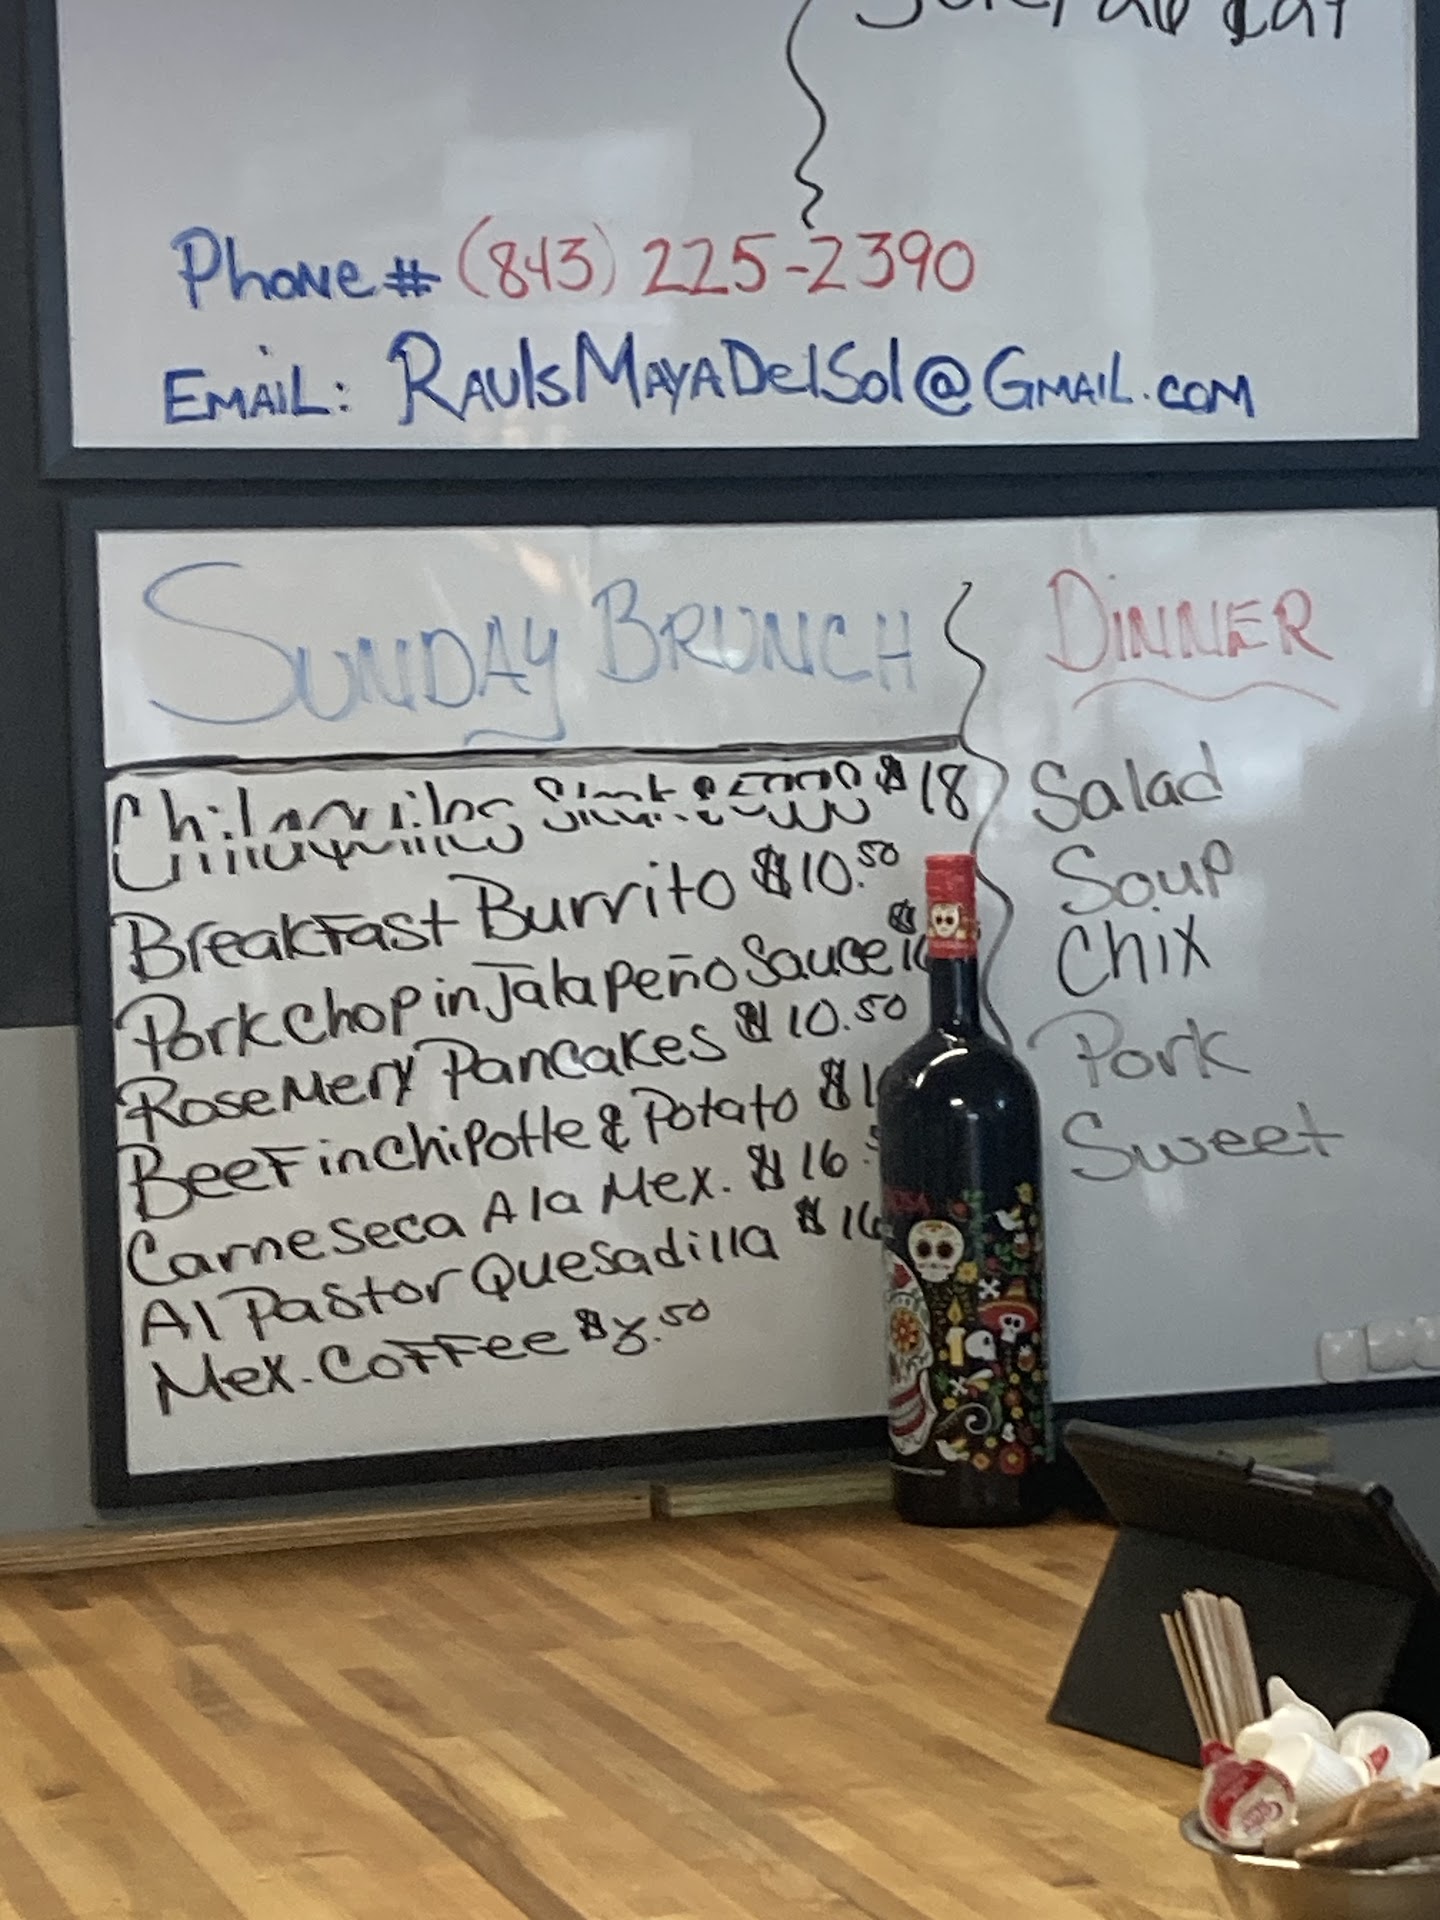 Phone # (843) 225-2390
Email: RaulsMayaDelSol@Gmail.com
Sunday Brunch
Chilaquiles $18
Breakfast Burrito $10.50
Pork Chop in Jalapeño Sauce $
Rosemery Pancakes $10.50
Beef in Chipotle & Potato $1
Carne seca A la Mex. $16
Al Pastor Quesadilla $16
Mex. Coffee
Dinner
Salad
Soup
Chix
Pork
Sweet